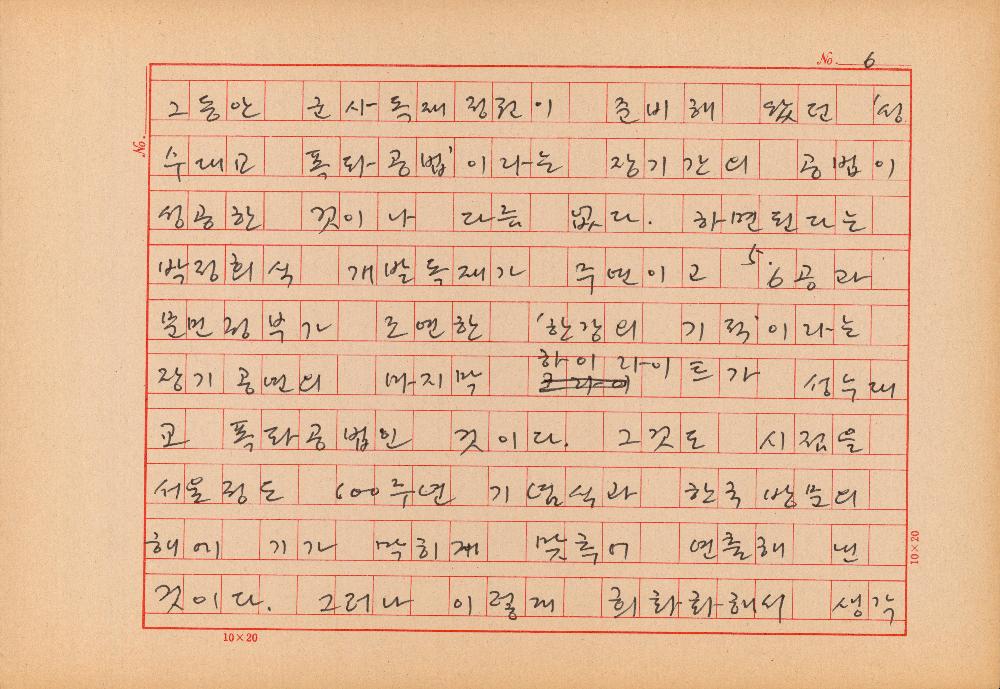 No. 6
그동안 군사독재정권이 준비해 왔던 '성
No.
수대교 폭파공법'이라는 장기간의 공법이
성공한 것이나 다름 없다. 하면된다는
박정희식 개발독재가 주연이고 5.6공과
문민정부가 조연한 '한강의 기적'이라는
장기 공연의 마지막 하이라이트가 성수대
교 폭파공법인 것이다. 그것도 시점을
서울정도 600주년 기념식과 한국방문의
해에 기가 막히게 맞추어 연출해 낸
것이다. 그러나 이렇게 희화화해서 생각
10×20
10×20